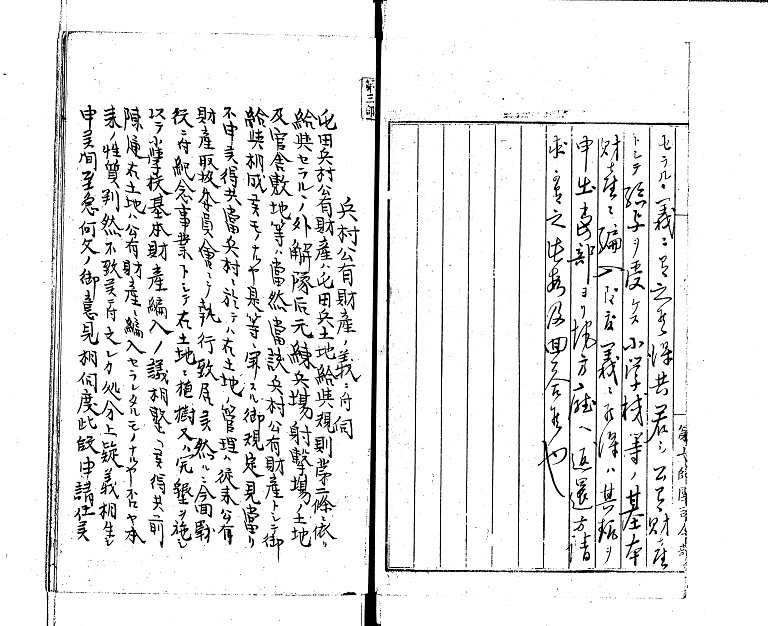 セラル、義ニ有之候得共若シ公有財産
トシテ給与ヲ受ケ小学校等ノ基本
財産ニ編入致度義ニ候得ハ其旨ヲ
申出当部ヨリ地方庁ヘ返還方請
求可有之此段及回答候也
兵村公有財産ノ義ニ付伺
屯田兵村公有財産ハ屯田兵土地給与規則第二條ニ依リ
給与セラルヽノ外解隊后元練兵場射撃場ノ土地
及官舎敷地等ハ当然当該兵村公有財産トシテ御
給与相成候モノナルヤ是等ニ関スル御規定見当リ
不申候得共当兵村ニ於テハ右土地ノ管理ハ従来公有
財産取扱委員会ニテ執行致居候然ルニ今回戦
役ニ付紀念事業トシテ右土地ニ植樹又ハ開墾ヲ施シ
以テ小学校基本財産編入ノ議相整ヒ候得共前
陳ノ通右土地ハ公有財産ニ編入セラレタルモノナルヤ否ヤ本
来ノ性質判然不致候ニ付之レカ処分上疑義相生シ
申候間至急何分ノ御意見相伺度此段申請仕候